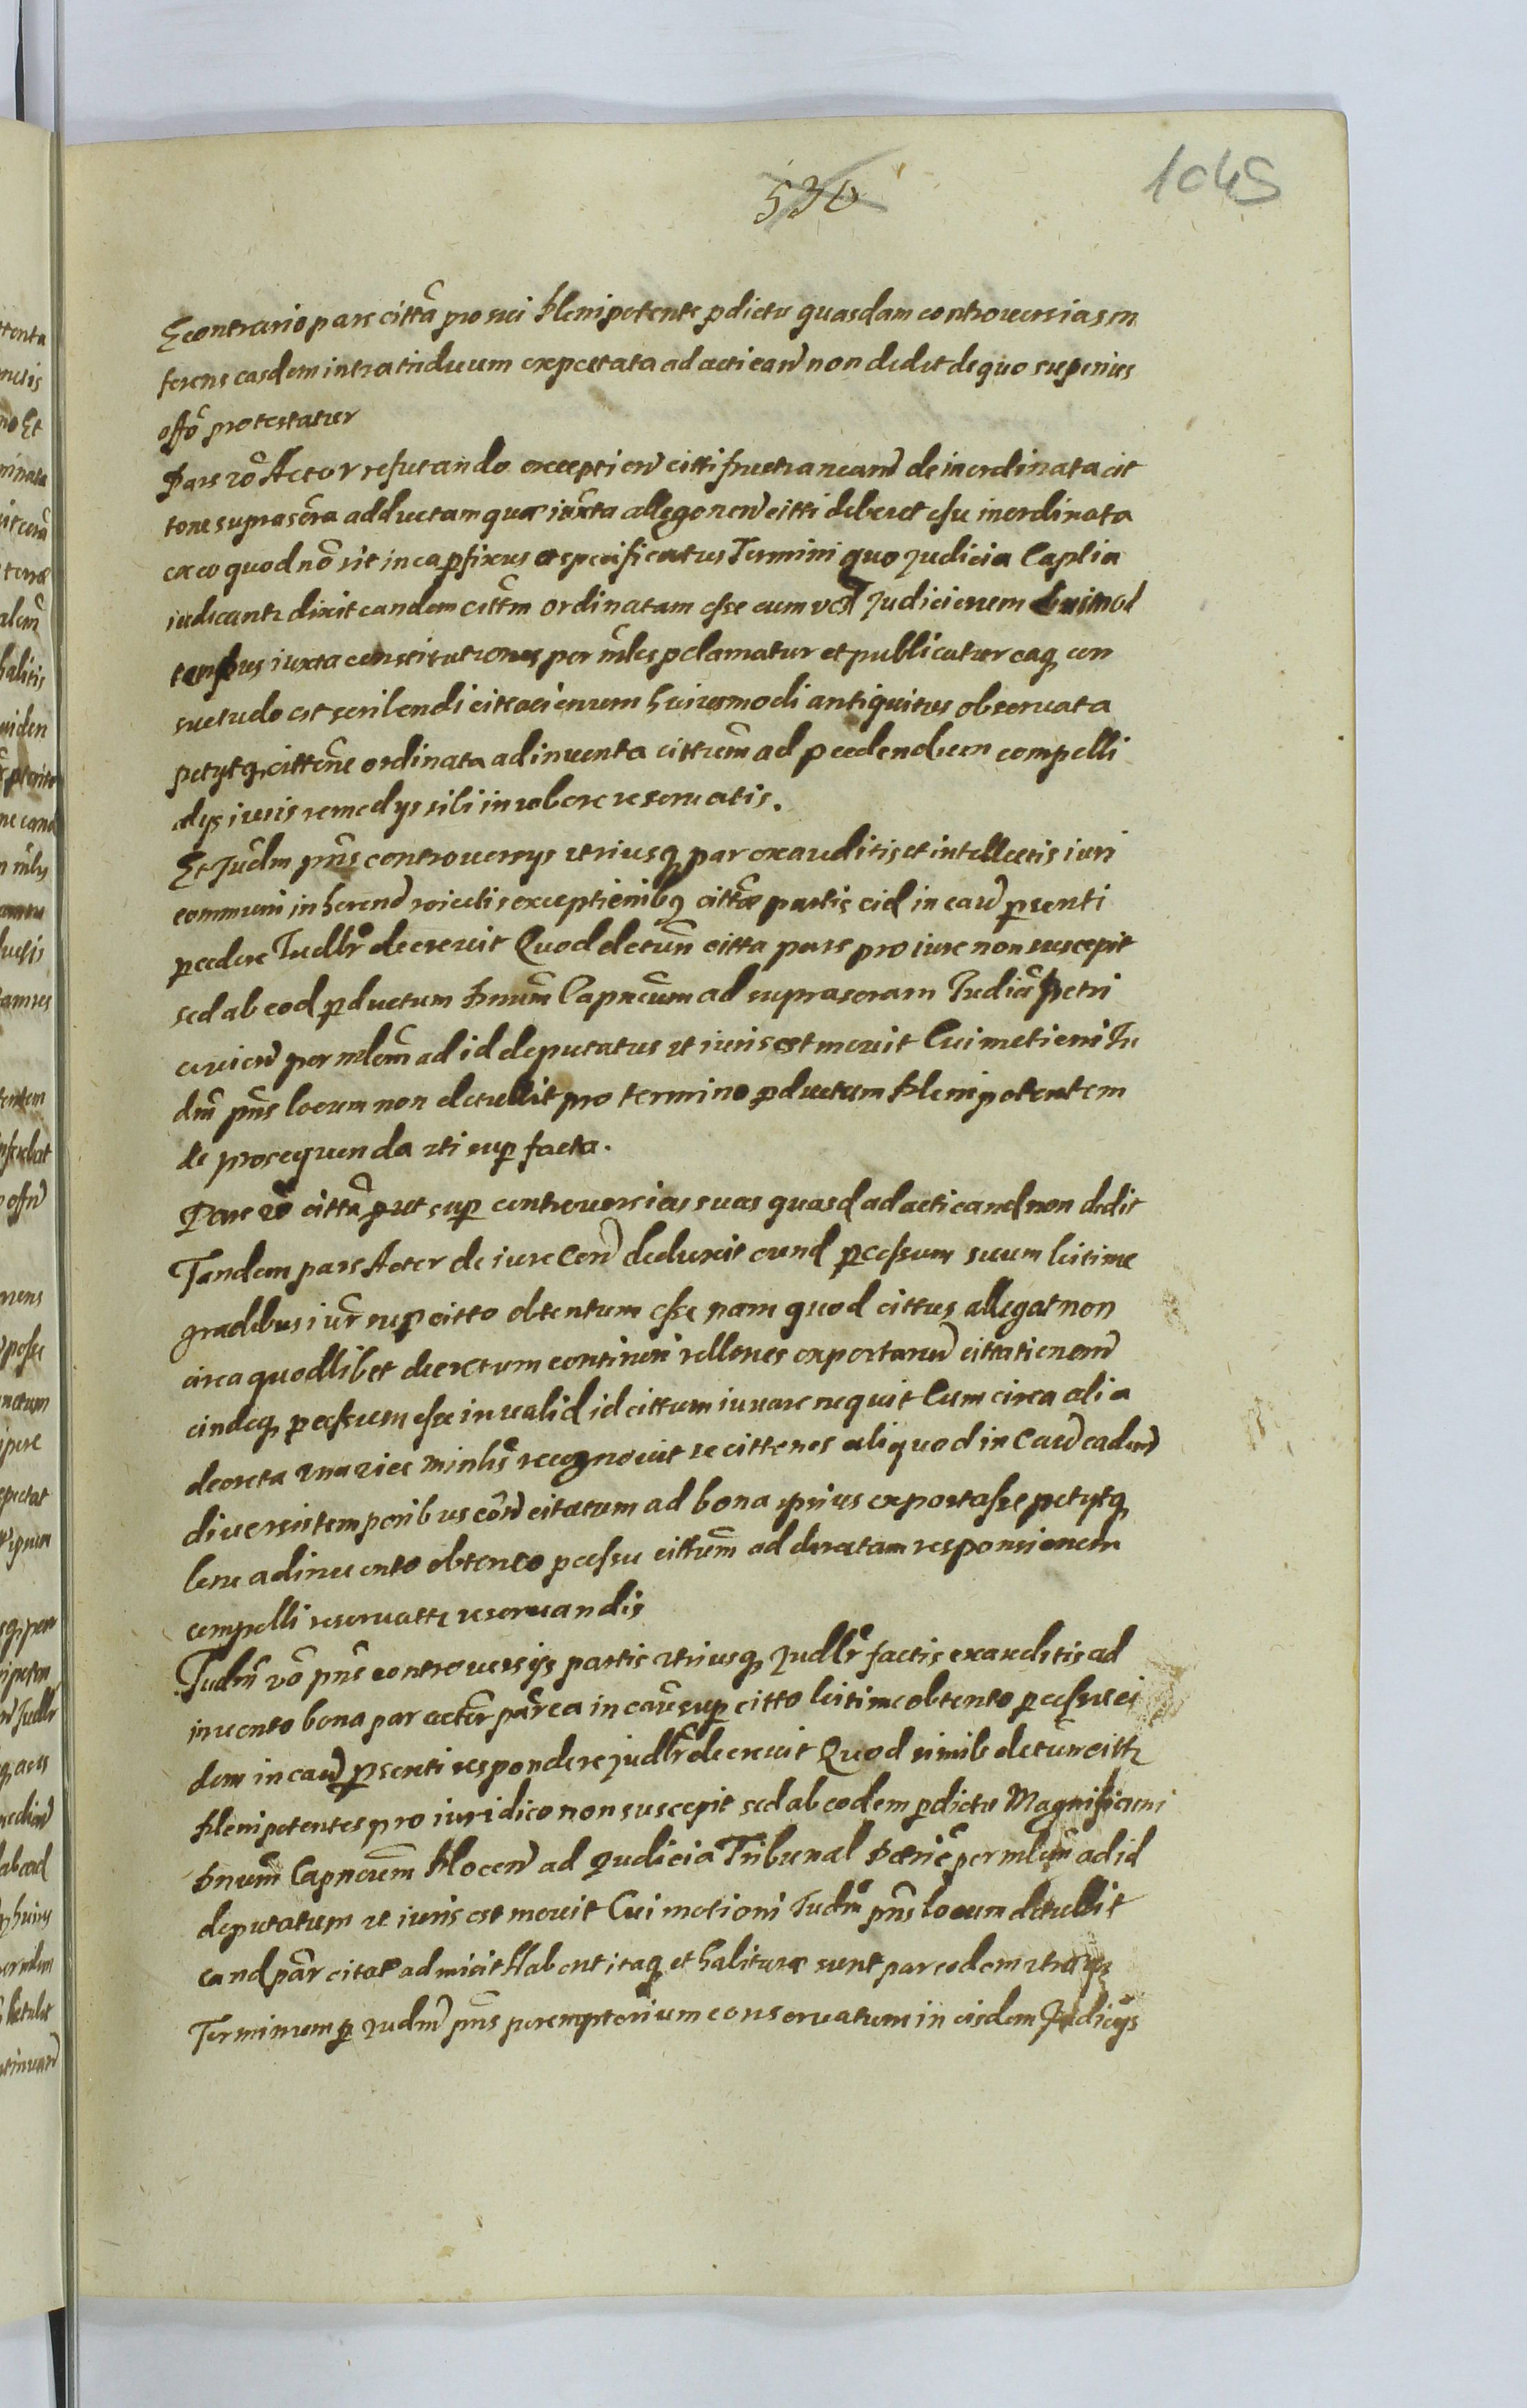 530
1045
Econtrario pars cittã pro sui Plenipotente pdictu quasdam controuersias in
ferens easdem intra triduum expectata ad acticand non dedit de quo superius
offõ protestatur
Pars võ Actor refutando exception citti fructraneam de inordinata cit
tone suprascra adductam quæ iuxta allegonem citti deberet esse inordinata
ex eo quod nõ sit in ea pfixus et specificatus Termini quo Judicia Caplia
iudicantr dixit eandem cittm ordinatam esse cum Judiciorum
tempus iuxta constitutiones per mles pclamatur et publicatur eaq con
suetudo est scribendi citacionum huiusmodi antiquitus obseruata
petytq cittõne ordinata adinuenta cittum ad pcedendum compelli
alys iuris remedys sibi in robore reseruatis.
Et Judm pns controuersys vtriusq par exauditis et intellectis iuri
communi inherend reiectis exceptionibq cittæ partis eid in caus psenti
pcedere Judlr decreuit Quod decretum citta pars pro iure non suscepit
sed ab eod pductum Pnum Capneum ad suprascram Judic Petri
per mlem ad id deputatus vt iuris est mouit Cui motioni Ju
dm pns locum non detullit pro termino pductum Plenipotentem
de prosequenda vti sup facta.
Pars võ cittã put sup controuersias suas quasd ad acticand non dedit
Tandem pars Actor de iure Con deduxit eund pcessum suum leitime
gradibus iur sup citto obtentum esse nam quod cittus allegat non
circa quodlibet decretum contineri rellones exportarum cittationem
eindeq pcessum esse inualid id cittum iuuare nequit Cum circa alia
decreta vna vice minlis recognouit se cittones aliquod in Caus eadem
diuersis temporibus cõn citatum ad bona ipsius exportasse petytq
bene adinuento obtento pcessu cittum ad directam responsionem
compelli reseruatis reseruandis
Judm võ pns controuersys partis vtriusq Judlr factis exauditis ad
inuento bona par actor parea in caus sup citto leitime obtento pcessu ei
dem in caus psenti respondere judlr decreuit Quod simile decretum citti
Plenipotentes pro iuridico non suscepit sed ab eodem pdictu Magnificum
Pnum Capneum Plocen ad Judicia Tribunal per mlem ad id
deputatum vt iuris est mouit Cui motioni Judm pns locum detullit
eand par citat admisit Habent itaq et habituræ sunt par eodem vtraq
Terminum p Judm pns peremptorium conseruatum in eisdem Judicys